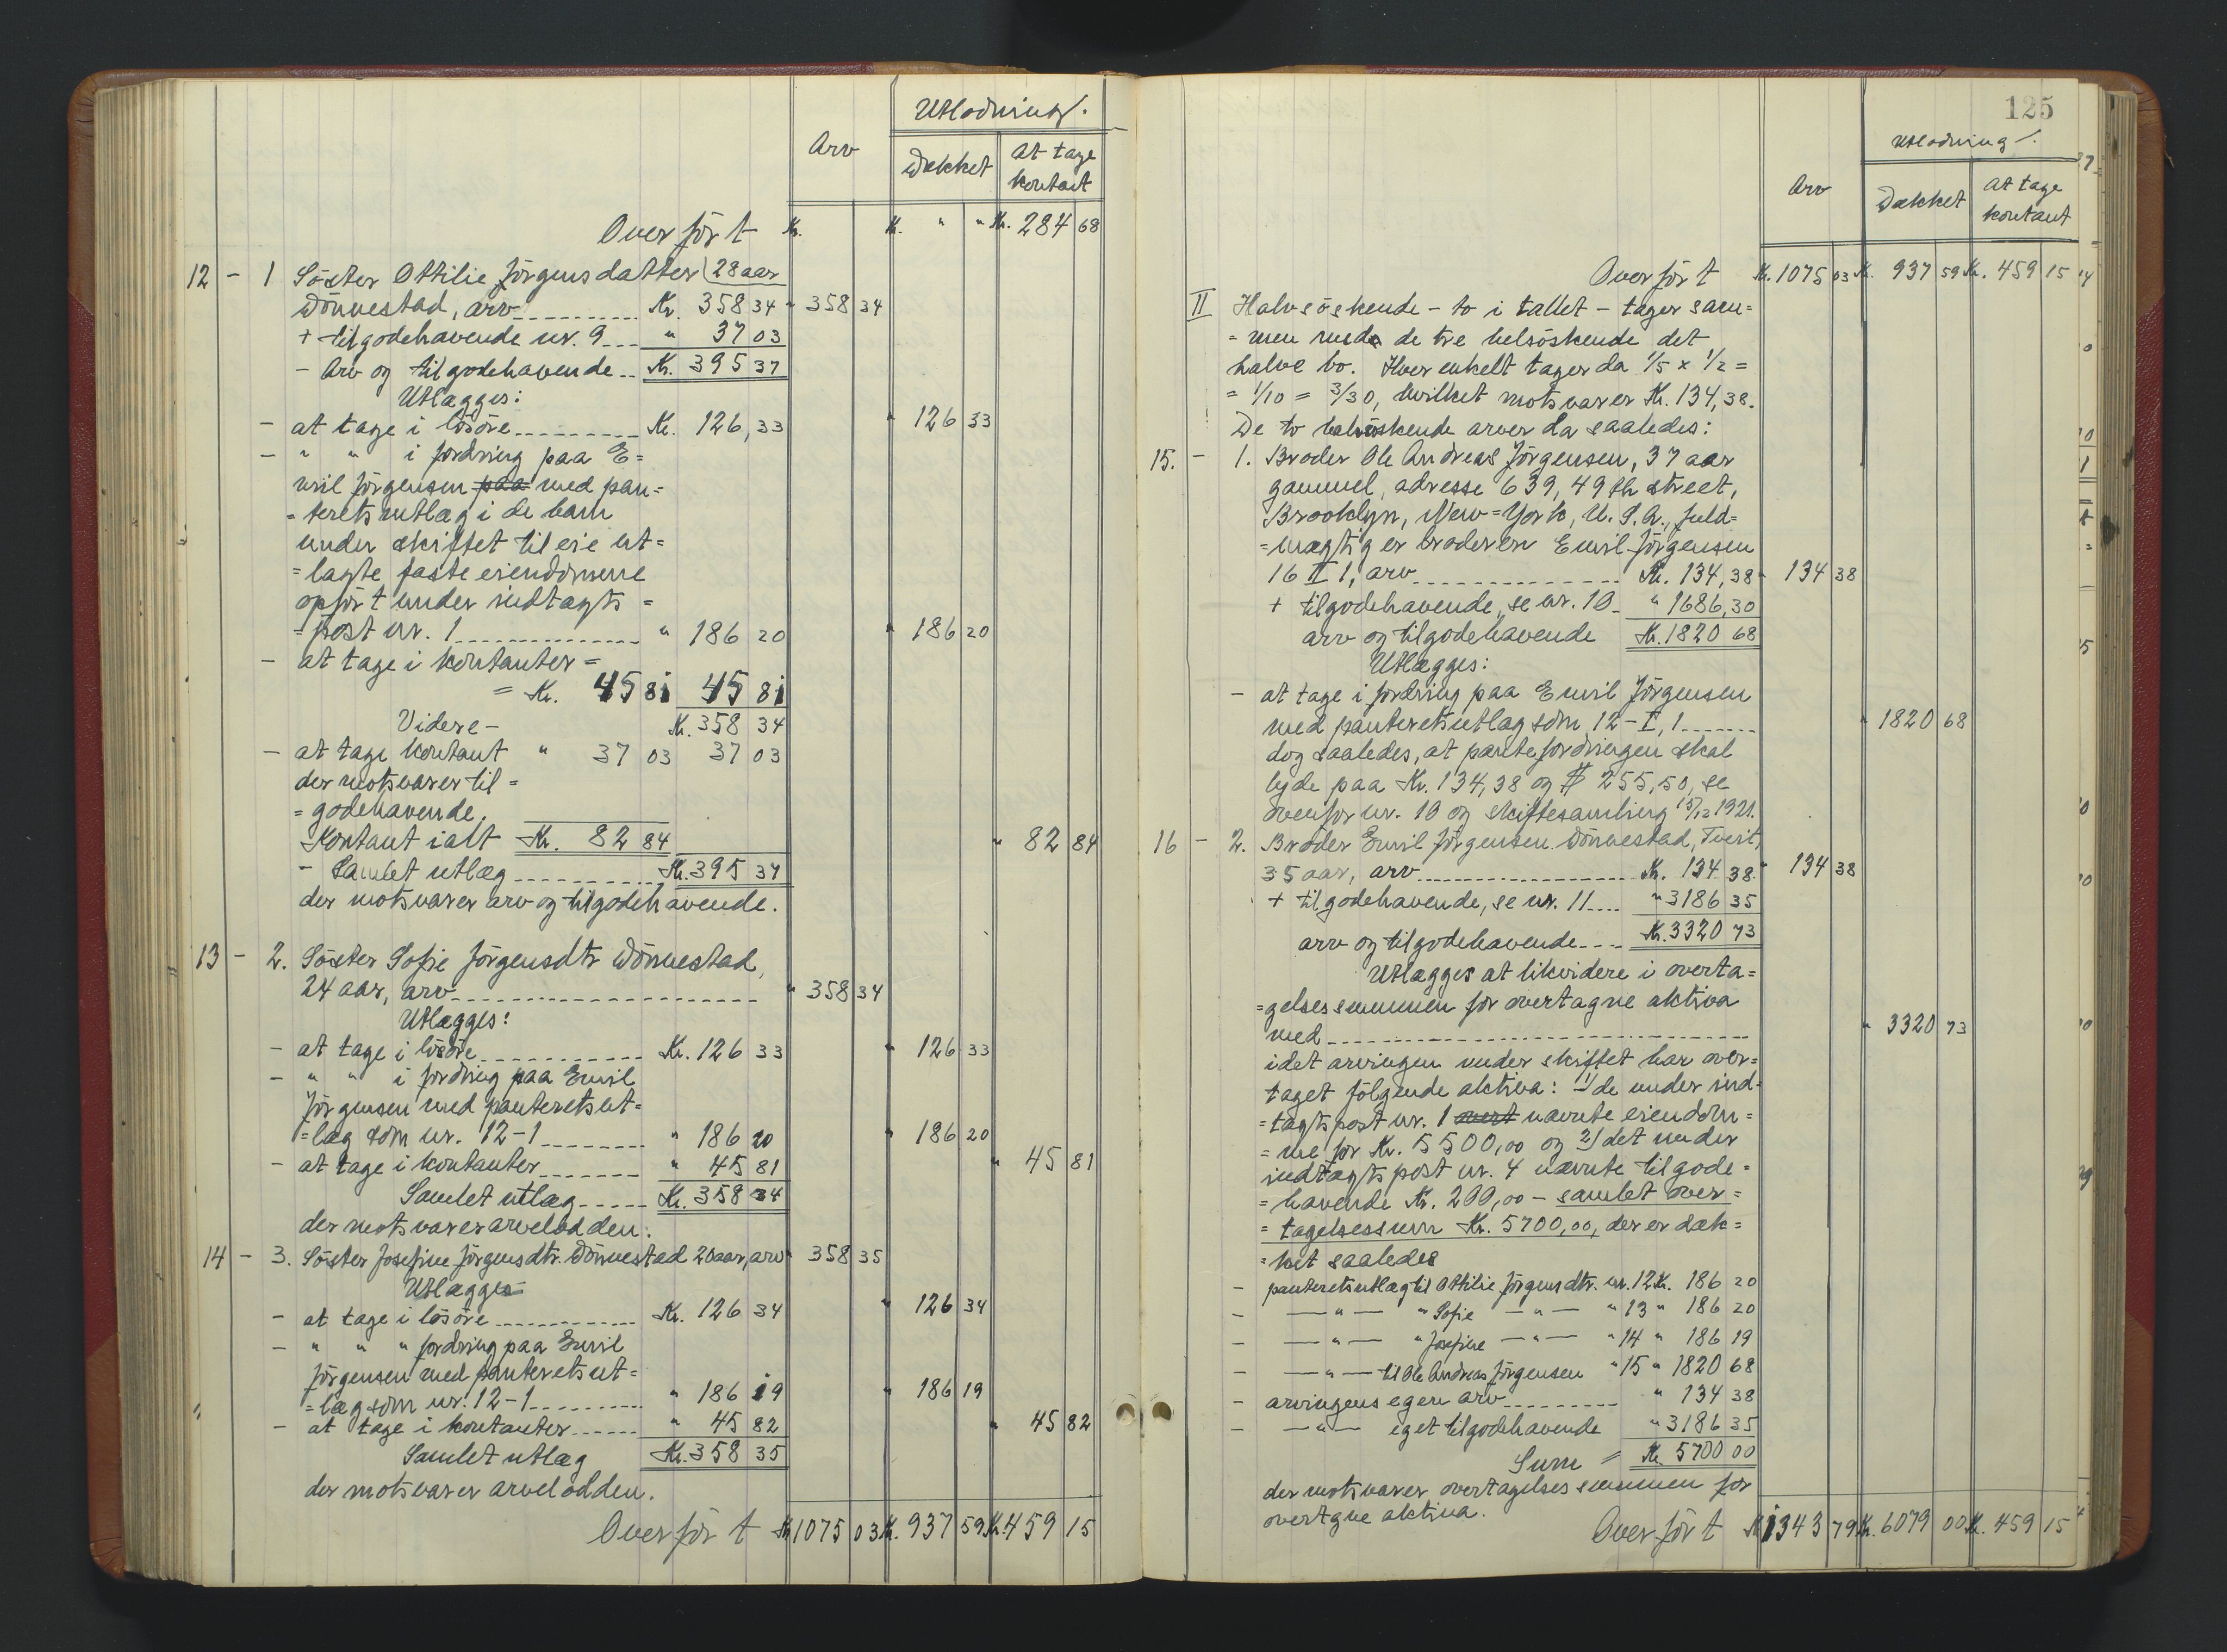 Utlodning.
Arv
Dækket
At tage
kontant
Overført Kr. Kr. " " Kr. 284 68
12 - 1 Söster Ottilie Jörgensdatter 28 aar
Dönnestad, arv Kr. 358 34 " 358 34
+ tilgodehavende nr. 9 " 37 03
- Arv og tilgodehavende Kr. 395 37
Utlægges:
- at tage i lösöre Kr. 126,33 " 126 33
- " " i fordring paa E=
mil Jörgensen paa med pan=
=teretsutlæg i de ham
under skiftet til eie ut=
=lagte faste eiendomme
opfört under indtægts=
=post nr. 1 " 186 20 " 186 20
- at tage i kontanter =
= Kr. 45 81 45 81
Videre - Kr. 358 34
- at tage kontant " 37 03 37 03
der motsvarer til=
=godehavende.
Kontant ialt Kr. 82 84 " 82 84
- Samlet utlæg Kr. 395 37
der motsvarer arv og tilgodehavende.
13 - 2. Söster Sofie Jörgensdtr Dönnestad,
24 aar, arv " 358 34
Utlægges:
- at tage i lösöre Kr. 126 33 " 126 33
- " " i fordring paa Emil
Jörgensen med panteretsut=
=læg som nr. 12-1 " 186 20 " 186 20
- at tage i kontanter " 45 81 " 45 81
Samlet utlæg Kr. 358 34
der motsvarer arvelodden.
14 - 3. Söster Josefine Jörgensdtr. Dönnestad 20 aar, arv " 358 35
Utlægges
- at tage i lösöre Kr. 126 34 " 126 34
- " " " fordring paa Emil
Jörgensen med panteretsut=
=læg som nr. 12-1 " 186 19 " 186 19
- at tage i kontanter " 45 82 " 45 82
Samlet utlæg Kr. 358 35
der motsvarer arvelodden.
Overført Kr. 1075 03 Kr. 937 59 Kr. 459 15
125
Utlodning.
Arv
Dækket
At tage
kontant
Overført Kr. 1075 03 Kr. 937 59 Kr. 459 15
II Halvsöskende - to i tallet - tager sam=
=men med de tre helsöskende det
halve bo. Hver enkelt tager da 1/5 x 1/2 =
= 1/10 = 3/30, hvilket motsvarer Kr. 134,38.
De to halvsöskende arver da saaledes:
15. - 1. Broder Ole Andreas Jörgensen, 37 aar
gammel, adresse 639, 49th street,
Brooklyn, New=York, U. S. A., fuld=
=mægtig er broderen Emil Jörgensen
16 II 1, arv Kr. 134,38 " 134 38
+ tilgodehavende, se nr. 10 " 1686,30
arv og tilgodehavende Kr. 1820 68
Utlægges:
- at tage i fordring paa Emil Jörgensen
med panteretsutlæg som 12-I,1 " 1820 68
dog saaledes, at pantefordringen skal
lyde paa Kr. 134,38 og $ 255,50, se
ovenfor nr. 10 og skiftesamling 15/12 1921.
16 - 2. Broder Emil Jörgensen Dönnestad, Tveit,
35 aar, arv Kr. 134 38 " 134 38
+ tilgodehavende, se nr. 11 " 3186 35
arv og tilgodehavende Kr. 3320 73
Utlægges at likvidere i overta=
=gelsessummen for overtagne aktiva
med " 3320 73
idet arvingen under skiftet har over=
taget fölgende aktiva: 1/ de under ind=
=tægtspost nr. 1 overt nævnte eiendom=
=me for Kr. 5500,00 og 2/ det under
indtægtspost nr. 4 nævnte tilgode=
=havende Kr. 200,00 - samlet over=
=tagelsessum Kr. 5700,00, der er dæk=
=ket saaledes
- panteretsutlæg til Ottilie Jörgensdtr. nr. 12 Kr. 186 20
- — " — " Sofie — " — " 13 " 186 20
- — " — " Josefine — " — " 14 " 186 19
- — " — til Ole Andreas Jörgensen " 15 " 1820 68
- arvingens egen arv " 134 38
- — " — eget tilgodehavende " 3186 35
Sum = Kr. 5700 00
der motsvarer overtagelsessummen for
overtagne aktiva.
Overført Kr. 1343 79 Kr. 6079 00 Kr. 459 15